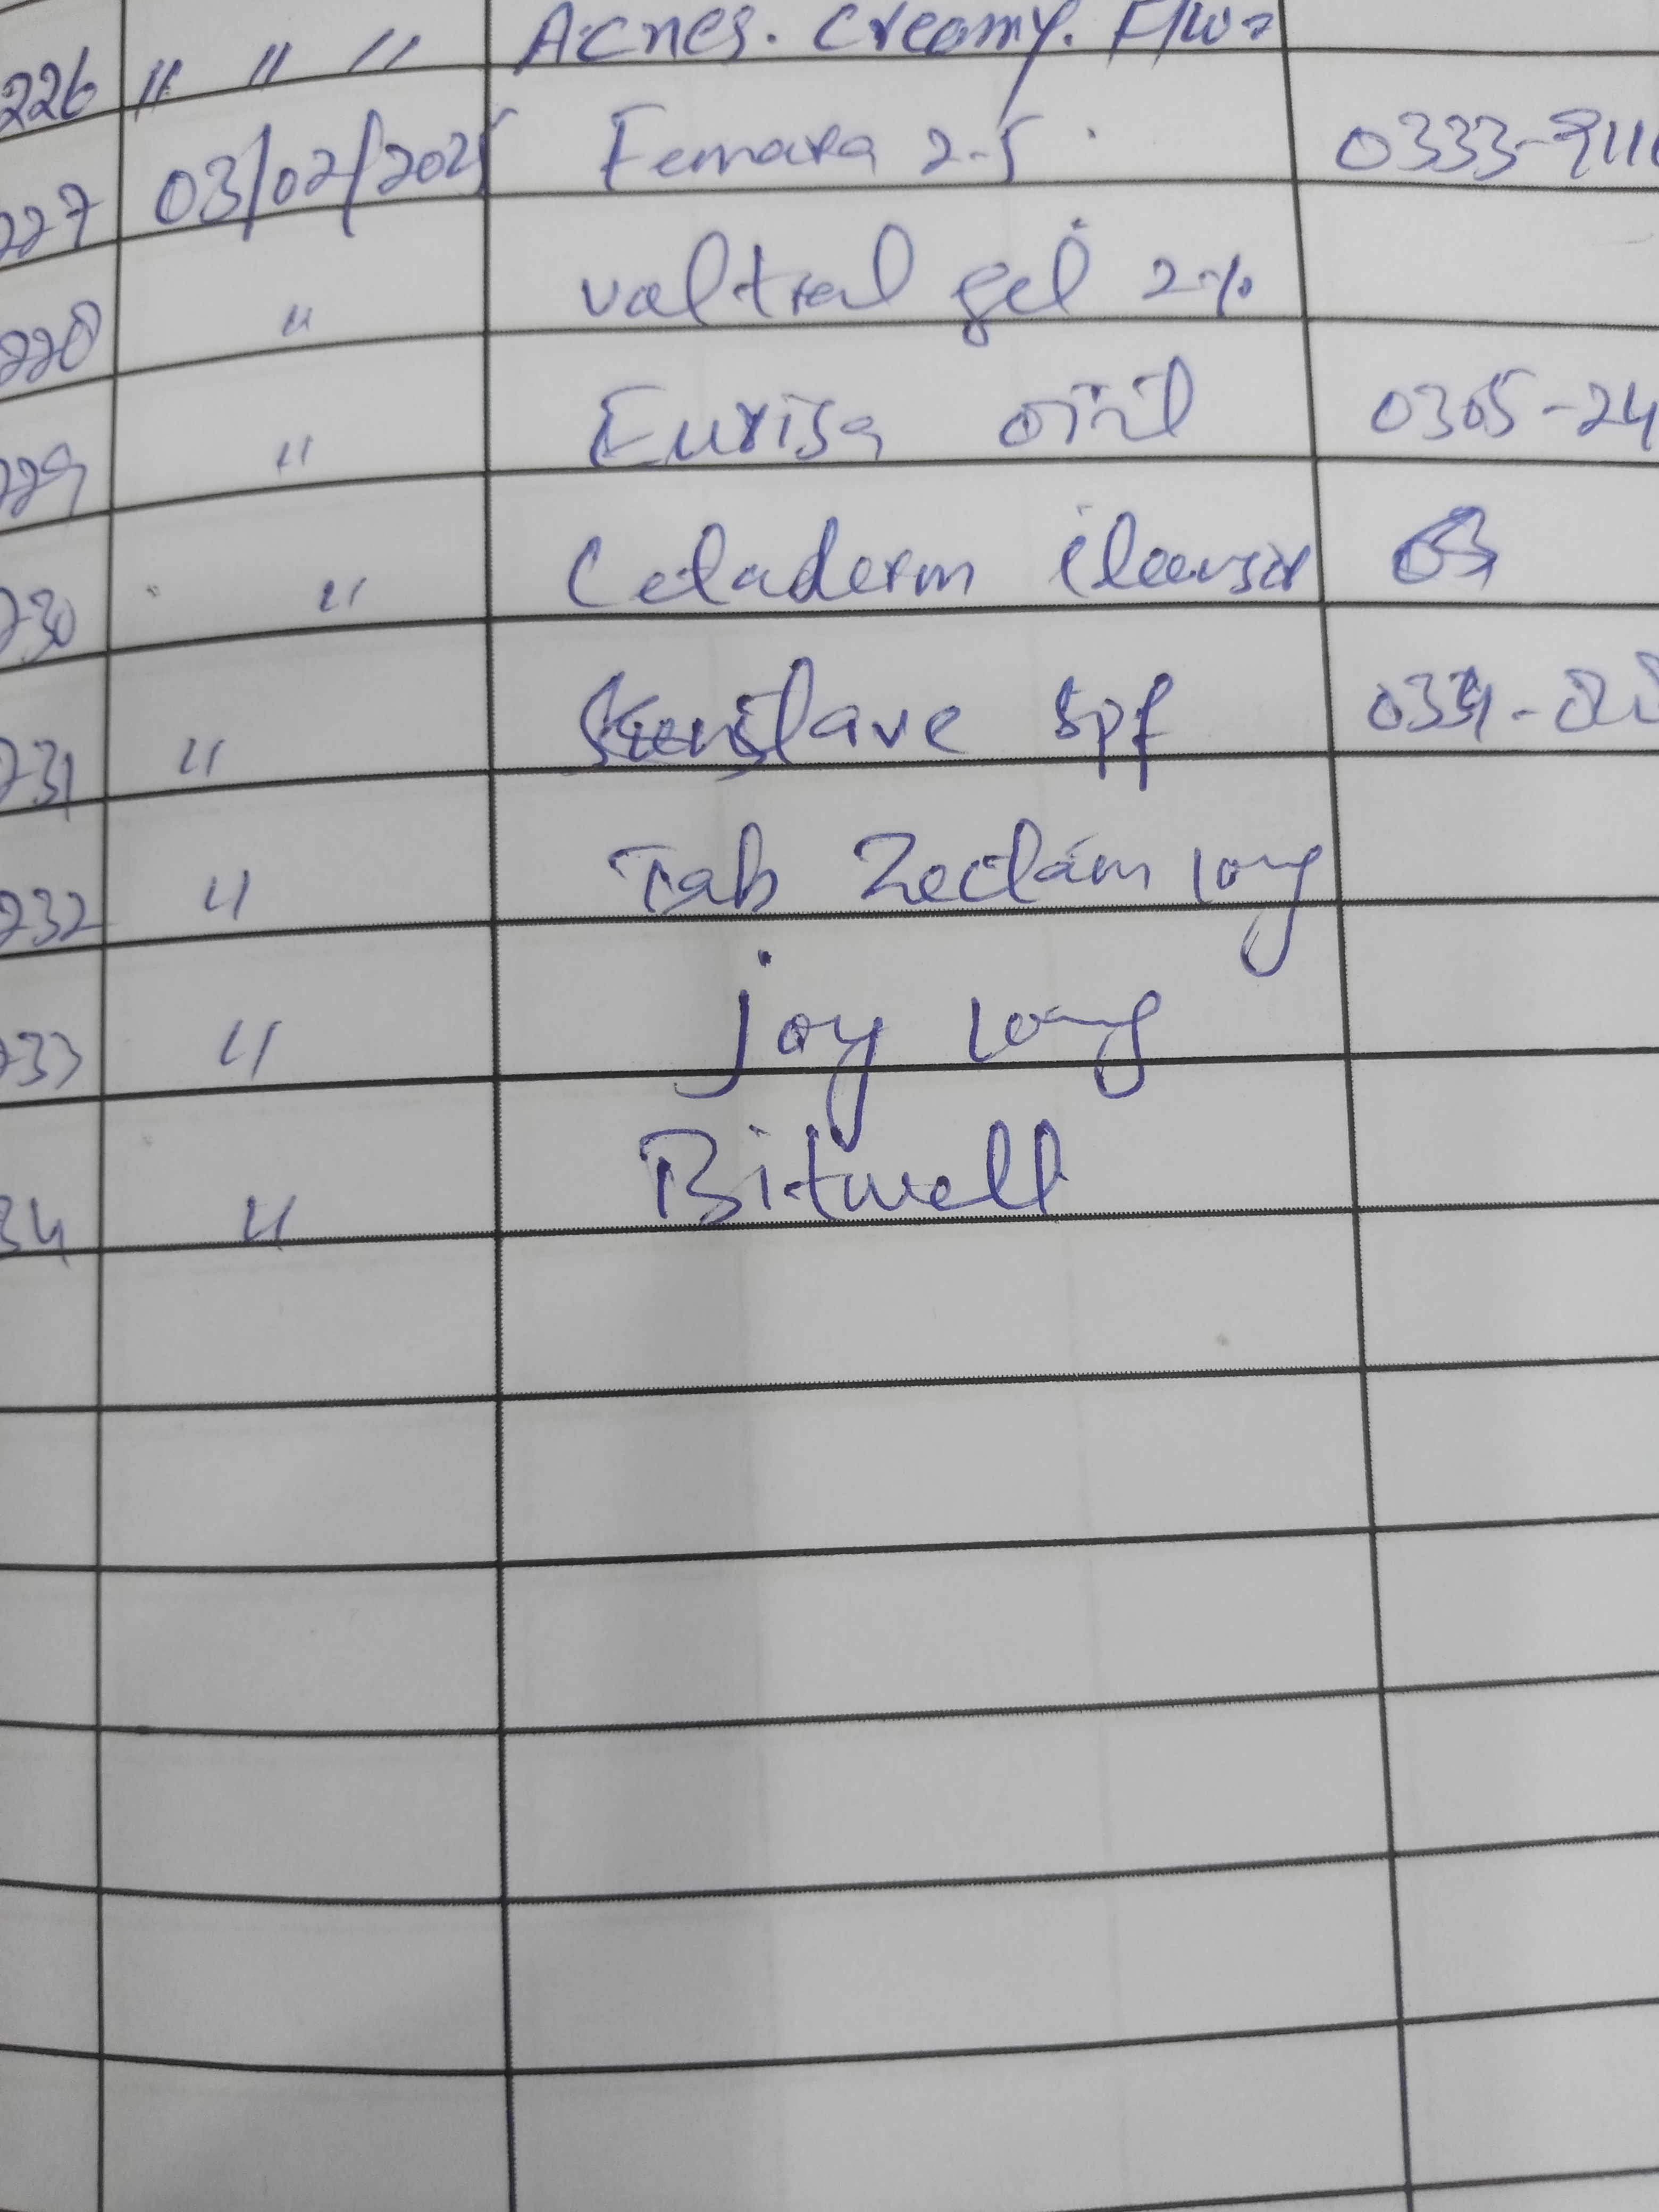 226 " " " Acnes. Creamy.
227 03/02/2025 Femara 2.5 0333-911
228 " valtral gel 2%
229 " Eurisa oil 0305-24
230 " Cetaderm Cleanser 03
231 " spf 0334-
232 " Tab Zeclam long
233 " joy long
34 " Bitwell